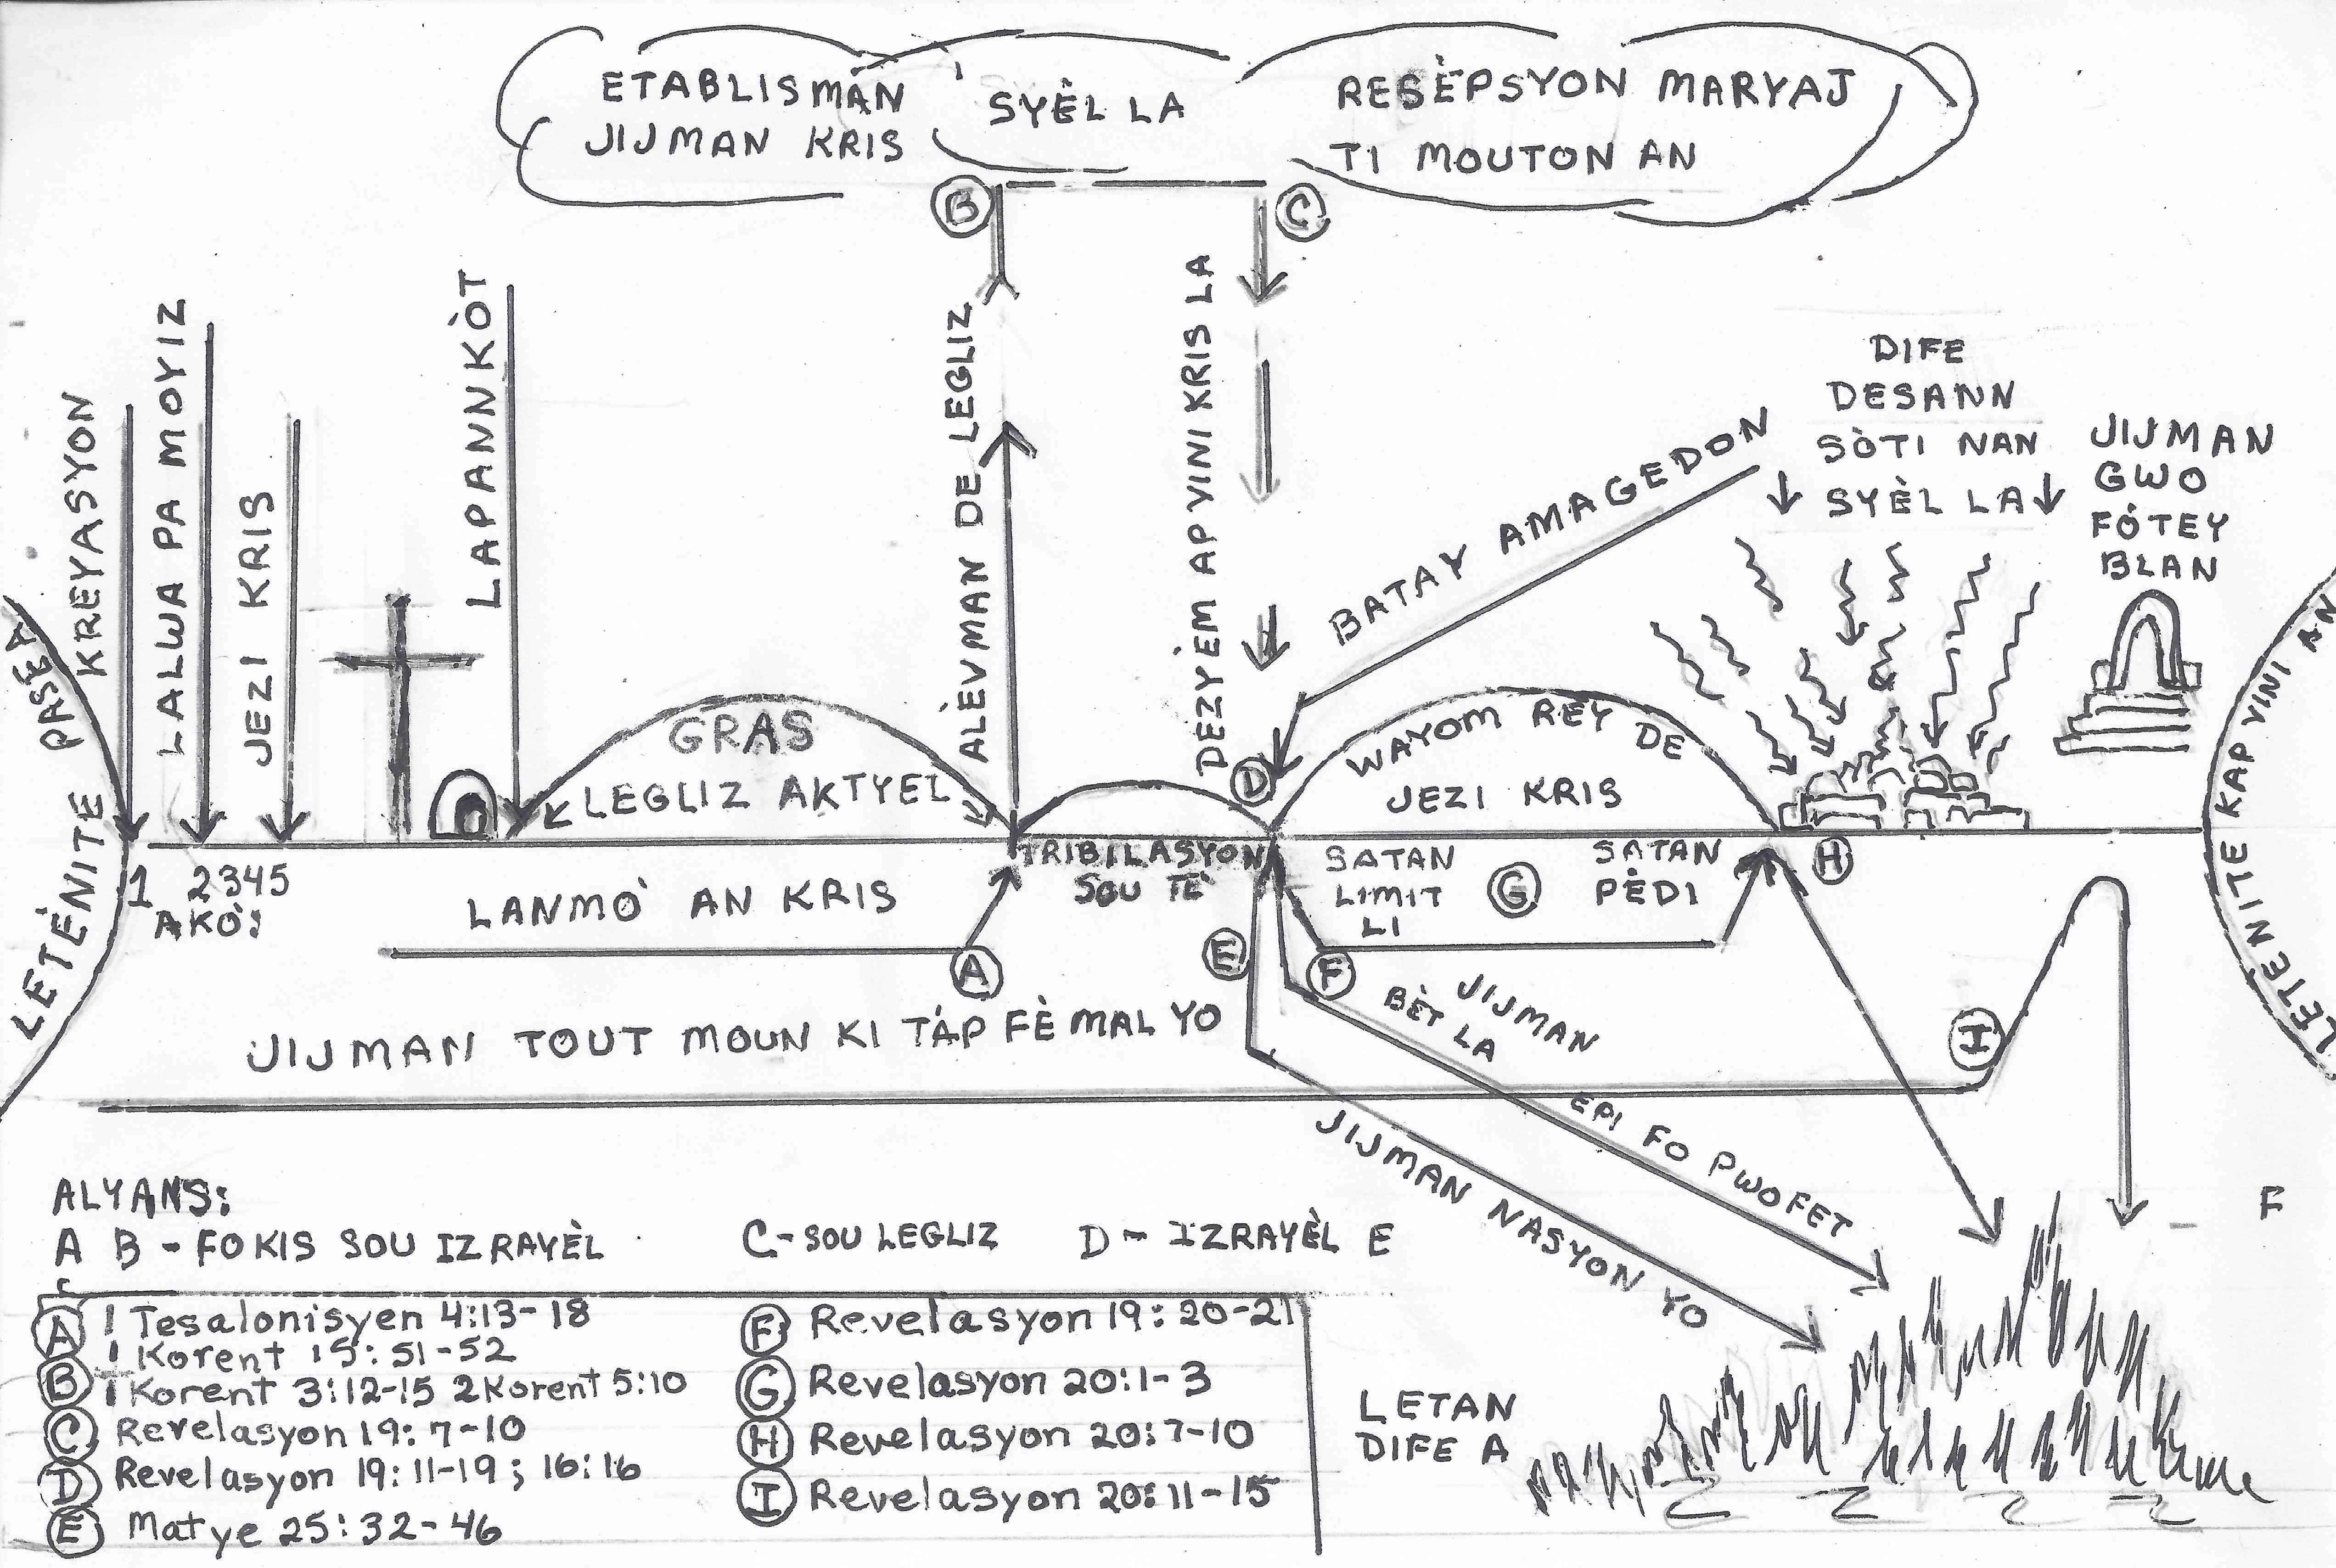 ETABLISMAN
JIJMAN KRIS
SYÈL LA
RESÈPSYON MARYAJ
TI MOUTON AN
B
C
LETÈNITE PASÉ A
KREYASYON
LALWA PA MOYIZ
JEZI KRIS
LAPANNKÒT
ALÈVMAN DE LEGLIZ
DEZYÈM AP VINI KRIS LA
BATAY AMAGEDON
DIFE
DESANN
SÒTI NAN
SYÈL LA
JIJMAN
GWO
FÒTEY
BLAN
LETENITE KAP VINI AN
GRAS
LEGLIZ AKTYEL
D
WAYOM REY DE
JEZI KRIS
1 2345
AKÒ:
LANMÒ AN KRIS
A
TRIBILASYON
SOU TÈ
SATAN
LIMIT
LI
G
SATAN
PÈDI
H
E
F
JIJMAN TOUT MOUN KI TÁP FÈ MAL YO
JIJMAN
BÈT LA
EPI FO PWOFET
I
JIJMAN NASYON YO
ALYANS:
A B - FOKIS SOU IZRAYÈL C- SOU LEGLIZ D - IZRAYÈL E
F
A 1 Tesalonisyen 4:13-18
1 Korent 15:51-52
B 1 Korent 3:12-15 2 Korent 5:10
C Revelasyon 19:7-10
D Revelasyon 19:11-19; 16:16
E Matye 25:32-46
F Revelasyon 19:20-21
G Revelasyon 20:1-3
H Revelasyon 20:7-10
I Revelasyon 20:11-15
LETAN
DIFE A